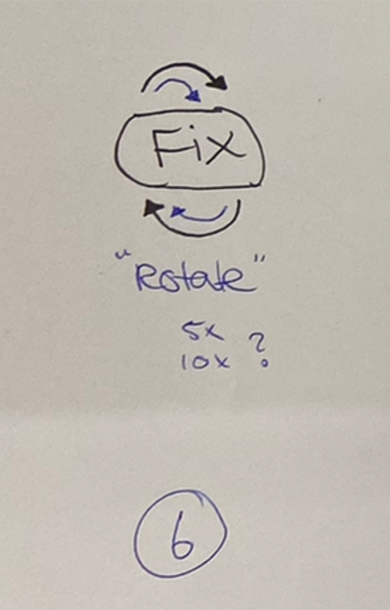 Fix
"Rotate"
5x
10x ?
6